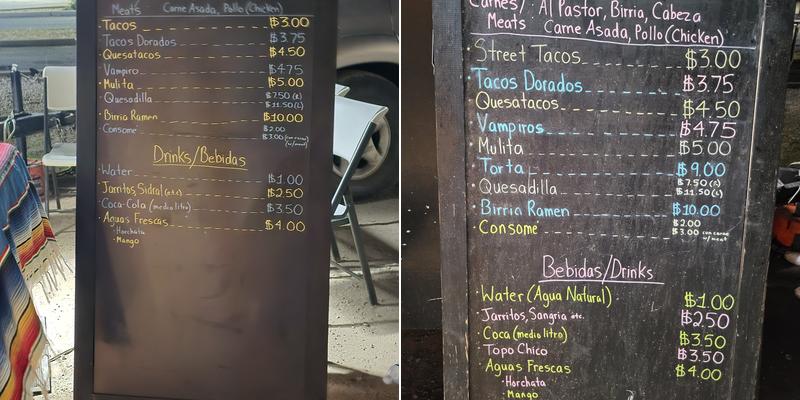 Meats Carne Asada, Pollo (Chicken)
Tacos $3.00
Tacos Dorados $3.75
Quesatacos $4.50
Vampiro $4.75
Mulita $5.00
Quesadilla $7.50 (R)
$11.50 (L)
Birria Ramen $10.00
Consome $2.00
$3.00 (con carne)
(w/meat)
Drinks/Bebidas
Water $1.00
Jarritos, Sidral (etc) $2.50
Coca-Cola (medio litro) $3.50
Aguas Frescas $4.00
Horchata
Mango
Carnes/: Al Pastor, Birria, Cabeza
Meats Carne Asada, Pollo (Chicken)
Street Tacos $3.00
Tacos Dorados $3.75
Quesatacos $4.50
Vampiros $4.75
Mulita $5.00
Torta $9.00
Quesadilla $7.50 (R)
$11.50 (L)
Birria Ramen $10.00
Consome $2.00
$3.00 con carne
w/meat
Bebidas/Drinks
Water (Agua Natural) $1.00
Jarritos, Sangria etc. $2.50
Coca (medio litro) $3.50
Topo Chico $3.50
Aguas Frescas $4.00
Horchata
Mango